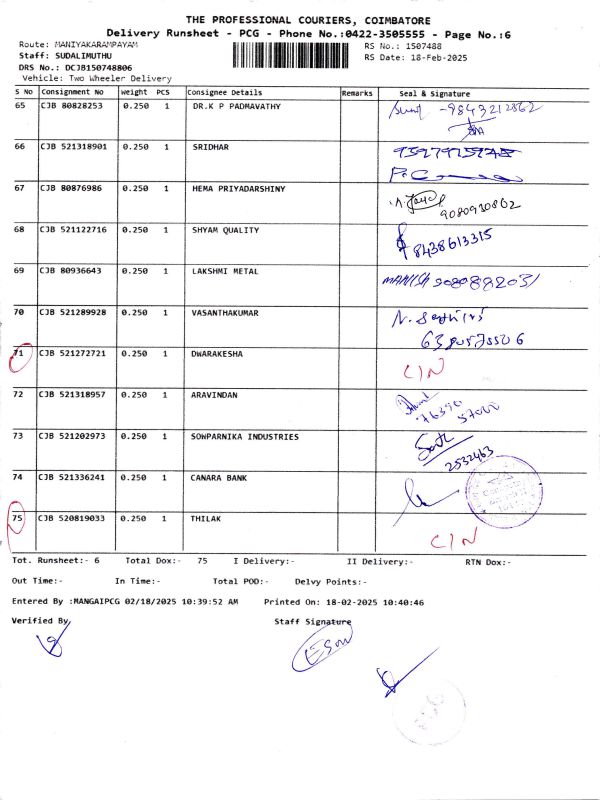 THE PROFESSIONAL COURIERS, COIMBATORE
Delivery Runsheet - PCG - Phone No.:0422-3505555 - Page No.:6
Route: MANIYAKARAMPAYAM RS No.: 1507488
Staff: SUDALIMUTHU RS Date: 18-Feb-2025
DRS No.: DCJB150748806
Vehicle: Two Wheeler Delivery
S No Consignment No Weight PCS Consignee Details Remarks Seal & Signature
65 CJB 80828253 0.250 1 DR.K P PADMAVATHY Sunil -9843212862
66 CJB 521318901 0.250 1 SRIDHAR
67 CJB 80876986 0.250 1 HEMA PRIYADARSHINY
9080910862
68 CJB 521122716 0.250 1 SHYAM QUALITY 8438613315
69 CJB 80936643 0.250 1 LAKSHMI METAL MANISH
70 CJB 521289928 0.250 1 VASANTHAKUMAR
71 CJB 521272721 0.250 1 DWARAKESHA CIN
72 CJB 521318957 0.250 1 ARAVINDAN
73 CJB 521202973 0.250 1 SOWPARNIKA INDUSTRIES
2532463
74 CJB 521336241 0.250 1 CANARA BANK
75 CJB 520819033 0.250 1 THILAK
CIN
Tot. Runsheet:- 6 Total Dox:- 75 I Delivery:- II Delivery:- RTN Dox:-
Out Time:- In Time:- Total POD:- Delvy Points:-
Entered By :MANGAIPCG 02/18/2025 10:39:52 AM Printed On: 18-02-2025 10:40:46
Verified By Staff Signature